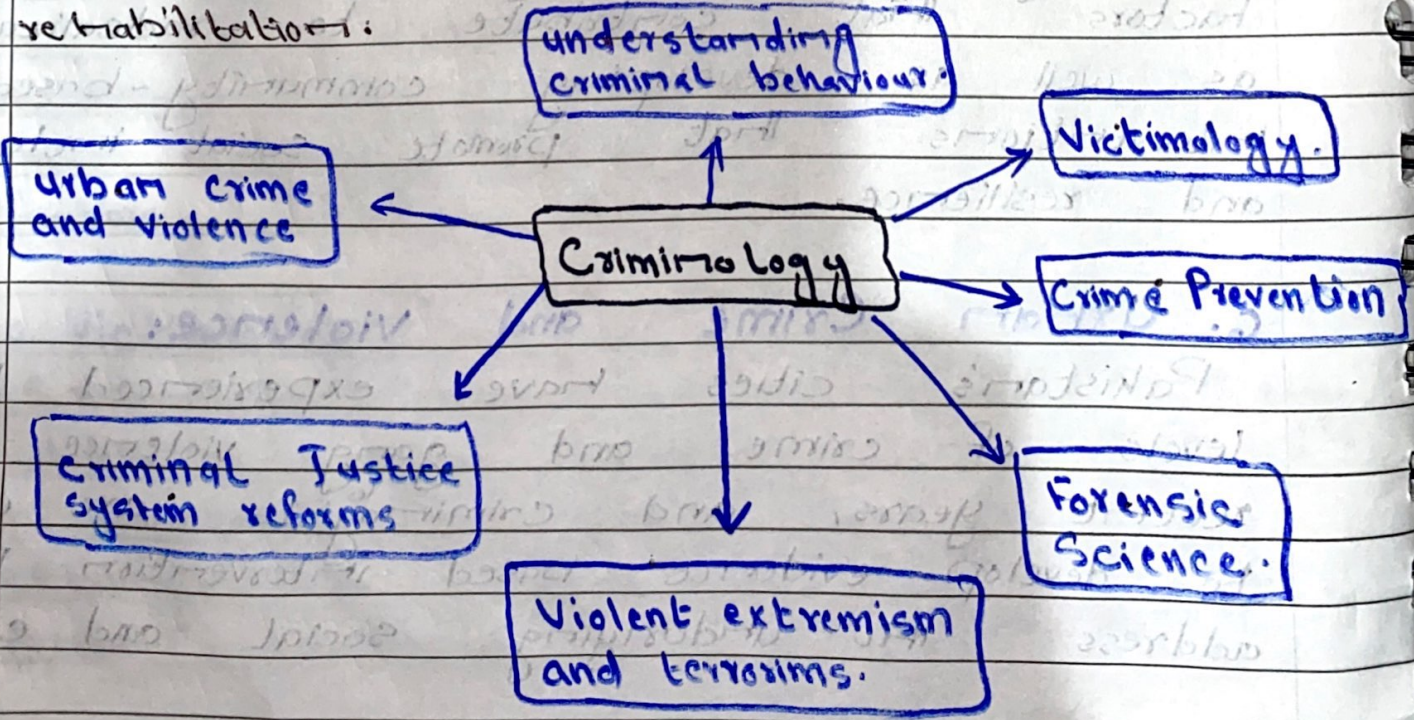 rehabilitation.
understanding
criminal behaviour.
Victimology.
urban crime
and violence
Criminology
Crime Prevention
criminal Justice
system reforms
Forensic
Science.
Violent extremism
and terrorims.